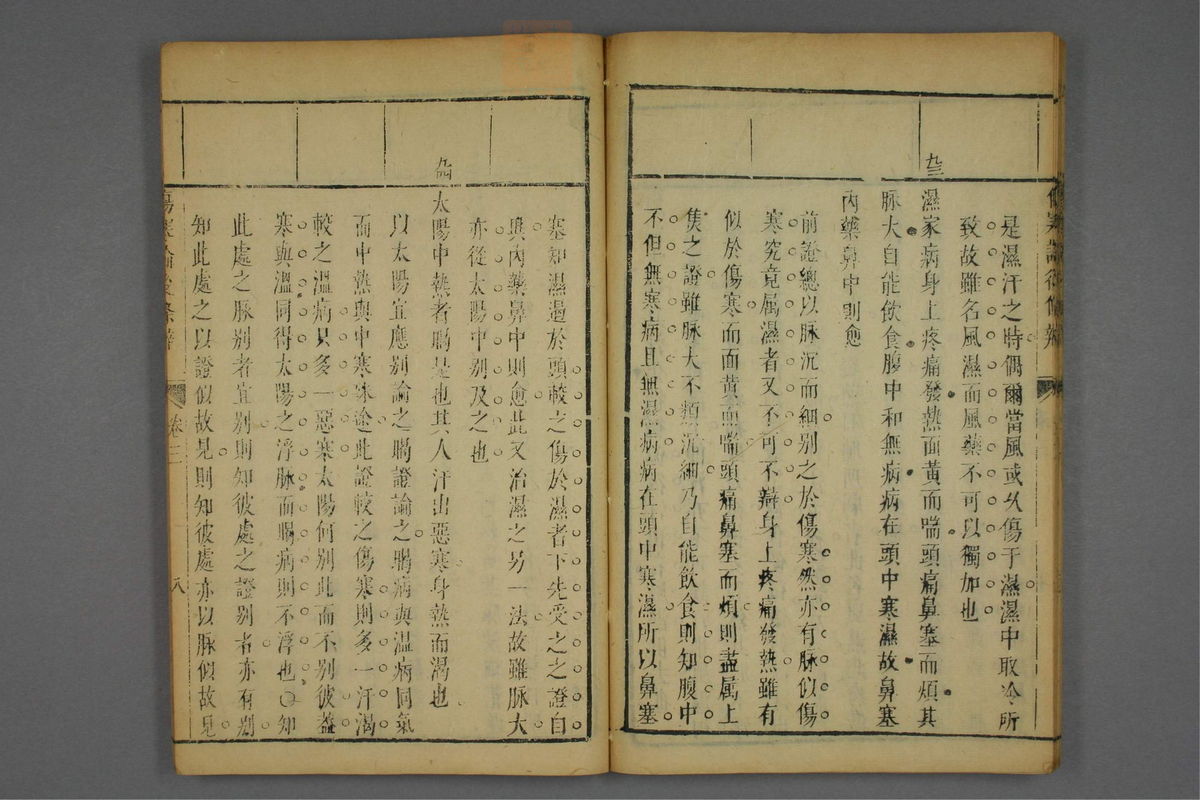 是濕汗之時偶爾當風或久傷于濕濕中取冷所
致故雖名風濕而風藥不可以獨加也
九三
濕家病身上疼痛發熱面黃而喘頭痛鼻塞而煩其
脉大自能飲食腹中和無病病在頭中寒濕故鼻塞
內藥鼻中則愈
前證總以脉沉而細別之於傷寒然亦有脉似傷
寒究竟属濕者又不可不辯身上疼痛發熱雖有
似於傷寒而面黃而喘頭痛鼻塞而煩則盡属上
焦之證雖脉大不類沉細乃自能飲食則知腹中
不但無寒病且無濕病病在頭中寒濕所以鼻塞
塞知濕過於頭較之傷於濕者下先受之之證自
異內藥鼻中則愈此又治濕之另一法故雖脉大
亦從太陽中别及之也
太陽中熱者暍是也其人汗出惡寒身熱而渴也
以太陽宜應别論之暍證論之暍病與温病同氣
而中熱與中寒殊途此證較之傷寒則多一汗渴
較之溫病只多一惡寒太陽何别此而不别彼蓋
寒與溫同得太陽之浮脉而暍病則不浮也○知
此處之脉别者宜别則知彼處之證别者亦有别
知此處之以證似故見則知彼處亦以脉似故見
傷寒論後條辯
卷三
八